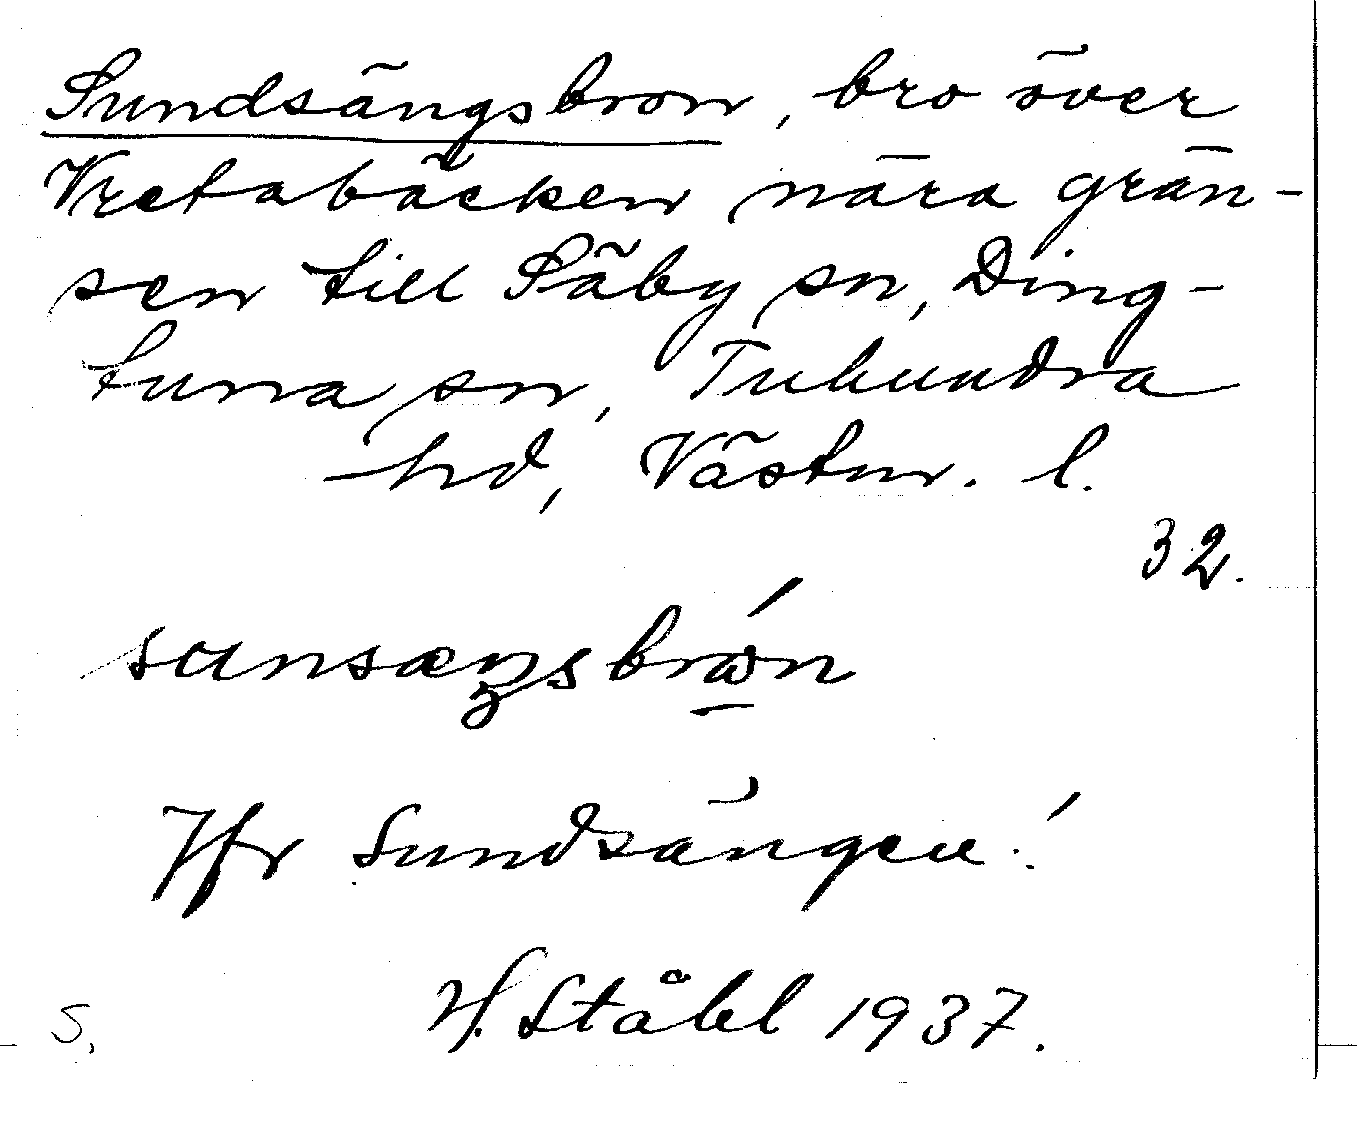 Sundsängsbron, bro över
Vretabäcken nära grän-
sen till Säby sn, Ding-
tuna sn, Tuhundra
hd, Västm. l.
32.
Jfr Sundsängen!
H. Ståhl 1937.
S.